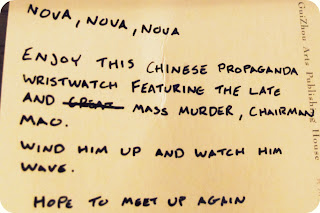 NOVA, NOVA, NOVA
ENJOY THIS CHINESE PROPAGANDA
WRISTWATCH FEATURING THE LATE
AND GREAT MASS MURDER, CHAIRMAN
MAO.
WIND HIM UP AND WATCH HIM
WAVE.
HOPE TO MEET UP AGAIN
GuiZhou Arts Publishing House